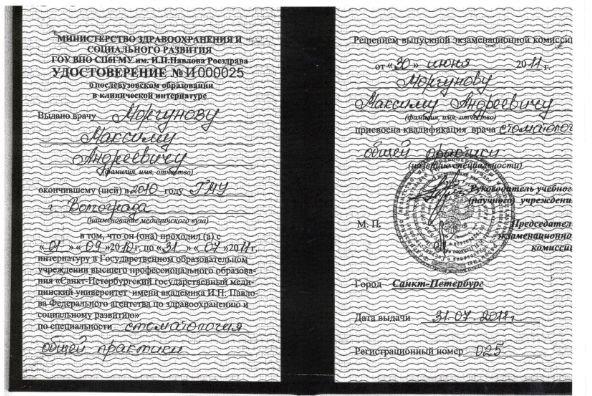 МИНИСТЕРСТВО ЗДРАВООХРАНЕНИЯ И
СОЦИАЛЬНОГО РАЗВИТИЯ
ГОУ ВПО СПбГМУ им. И.П.Павлова Росздрава
УДОСТОВЕРЕНИЕ № И 000025
о послевузовском образовании
в клинической интернатуре
Выдано врачу Моргунову
Максиму
Андреевичу
(фамилия, имя, отчество)
окончившему (шей) в 2010 году ГМУ
г. Волгограда
(наименование медицинского вуза)
в том, что он (она) проходил (а) с
«01» «09» 2010г. по «31» «07» 2011г.
интернатуру в Государственном образовательном
учреждении высшего профессионального образова-
ния «Санкт-Петербургский государственный меди-
цинский университет имени академика И.П. Павло-
ва Федерального агентства по здравоохранению и
социальному развитию»
по специальности стоматология
общей практики
Решением выпускной экзаменационной комисси
от «30» июня 2011 г.
Моргунову
Максиму Андреевичу
(фамилия, имя, отчество)
присвоена квалификация врача стоматолог
общей практики
(название специальности)
Руководитель учебног
(научного) учреждени
М. П.
Председател
экзаменационно
комисси
Город Санкт-Петербург
Дата выдачи 31.07.2011г
Регистрационный номер 025